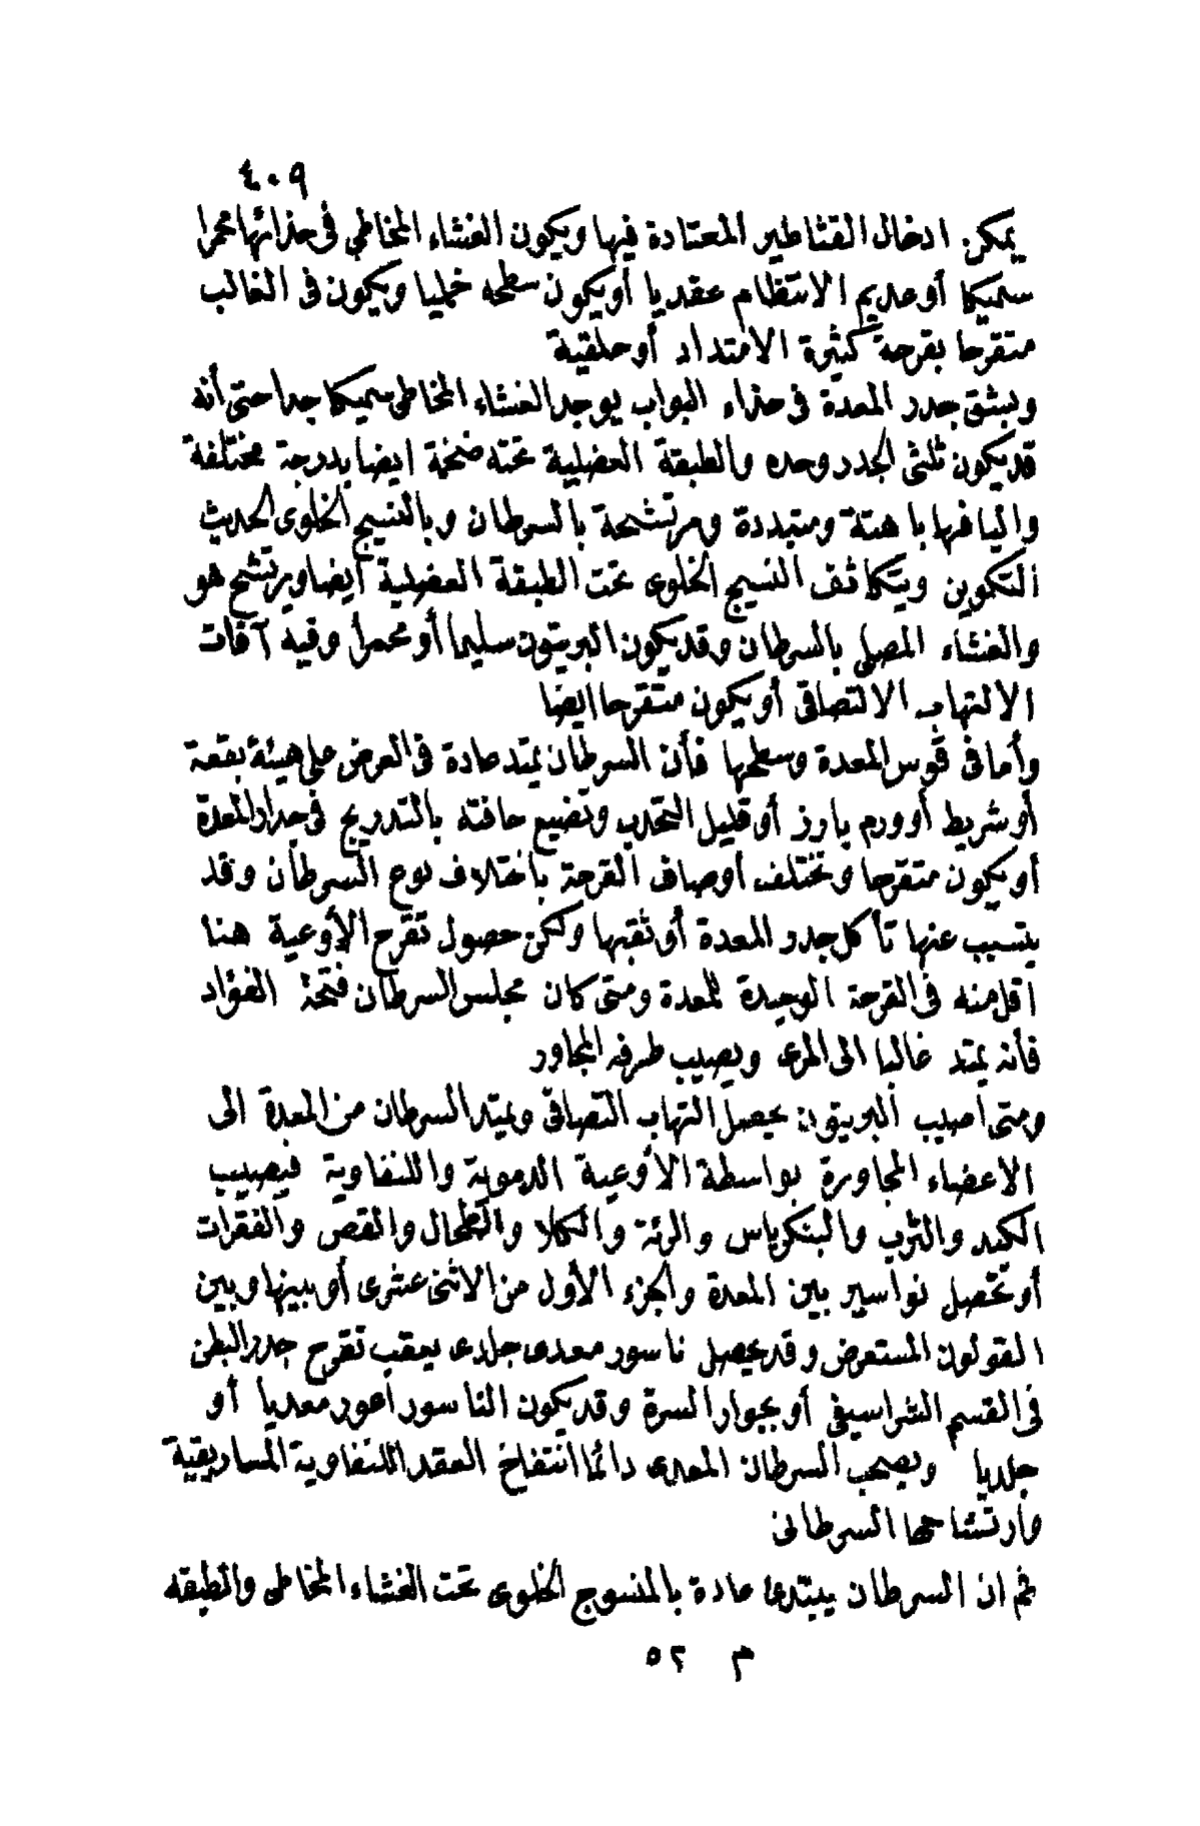 ٤٠٩
يمكن ادخال القثاطير المعتادة فيها ويكون الغشاء المخاطي في حذائها محمرا
سميكا أو عديم الانتظام عقديا أو يكون سطحه خمليا ويكون في الغالب
متقرحا بقرحة كثيرة الامتداد أو حلقية
وبشق جدر المعدة في حذاء البواب يوجد الغشاء المخاطي سميكا جدا حتى أنه
قد يكون ثلثى الجدر وحده والطبقة العضلية تحته ضخمة ايضا بدرجة مختلفة
واليافها باهتة ومتبددة ومرتشحة بالسرطان وبالنسيج الخلوى الحديث
التكوين ويتكاثف النسيج الخلوى تحت الطبقة العضلية أيضا ويرتشح هو
والغشاء المصلى بالسرطان وقد يكون البريتون سليما أو محمرا وفيه آفات
الالتهاب الالتصاقى أو يكون متقرحا ايضا
وأما في قوس المعدة وسطحها فأن السرطان يمتد عادة في العرض على هيئة بقعة
أو شريط أو ورم بارز أو قليل التحدب وتضيع حافته بالتدريج في جدار المعدة
أو يكون متقرحا وتختلف أوصاف القرحة باختلاف نوع السرطان وقد
يتسبب عنها تأكل جدر المعدة أو ثقبها ولكن حصول تقرح الأوعية هنا
اقل منه في القرحة الوحيدة للمعدة ومتى كان مجلس السرطان فتحة الفؤاد
فأنه يمتد غالبا الى المرى ويصيب طرفه المجاور
ومتى اصيب البريتون يحصل التهاب التصاقى ويمتد السرطان من المعدة الى
الاعضاء المجاورة بواسطة الأوعية الدموية واللنفاوية فيصيب
الكبد والثرب والبنكرياس والرئة والكلا والطحال والقص والفقرات
أو تحصل نواسير بين المعدة والجزء الأول من الاثنى عشرى أو بينها وبين
القولون المستعرض وقد يحصل ناسور معدى جلدى يعقب تقرح جدر البطن
في القسم الشراسيفى أو بجوار السرة وقد يكون الناسور أعور معديا أو
جلديا ويصحب السرطان المعدى دائما انتفاخ العقد اللنفاوية المساريقية
وارتشاحها السرطانى
ثم ان السرطان يبتدئ عادة بالمنسوج الخلوى تحت الغشاء المخاطى والطبقه
م ٥٢